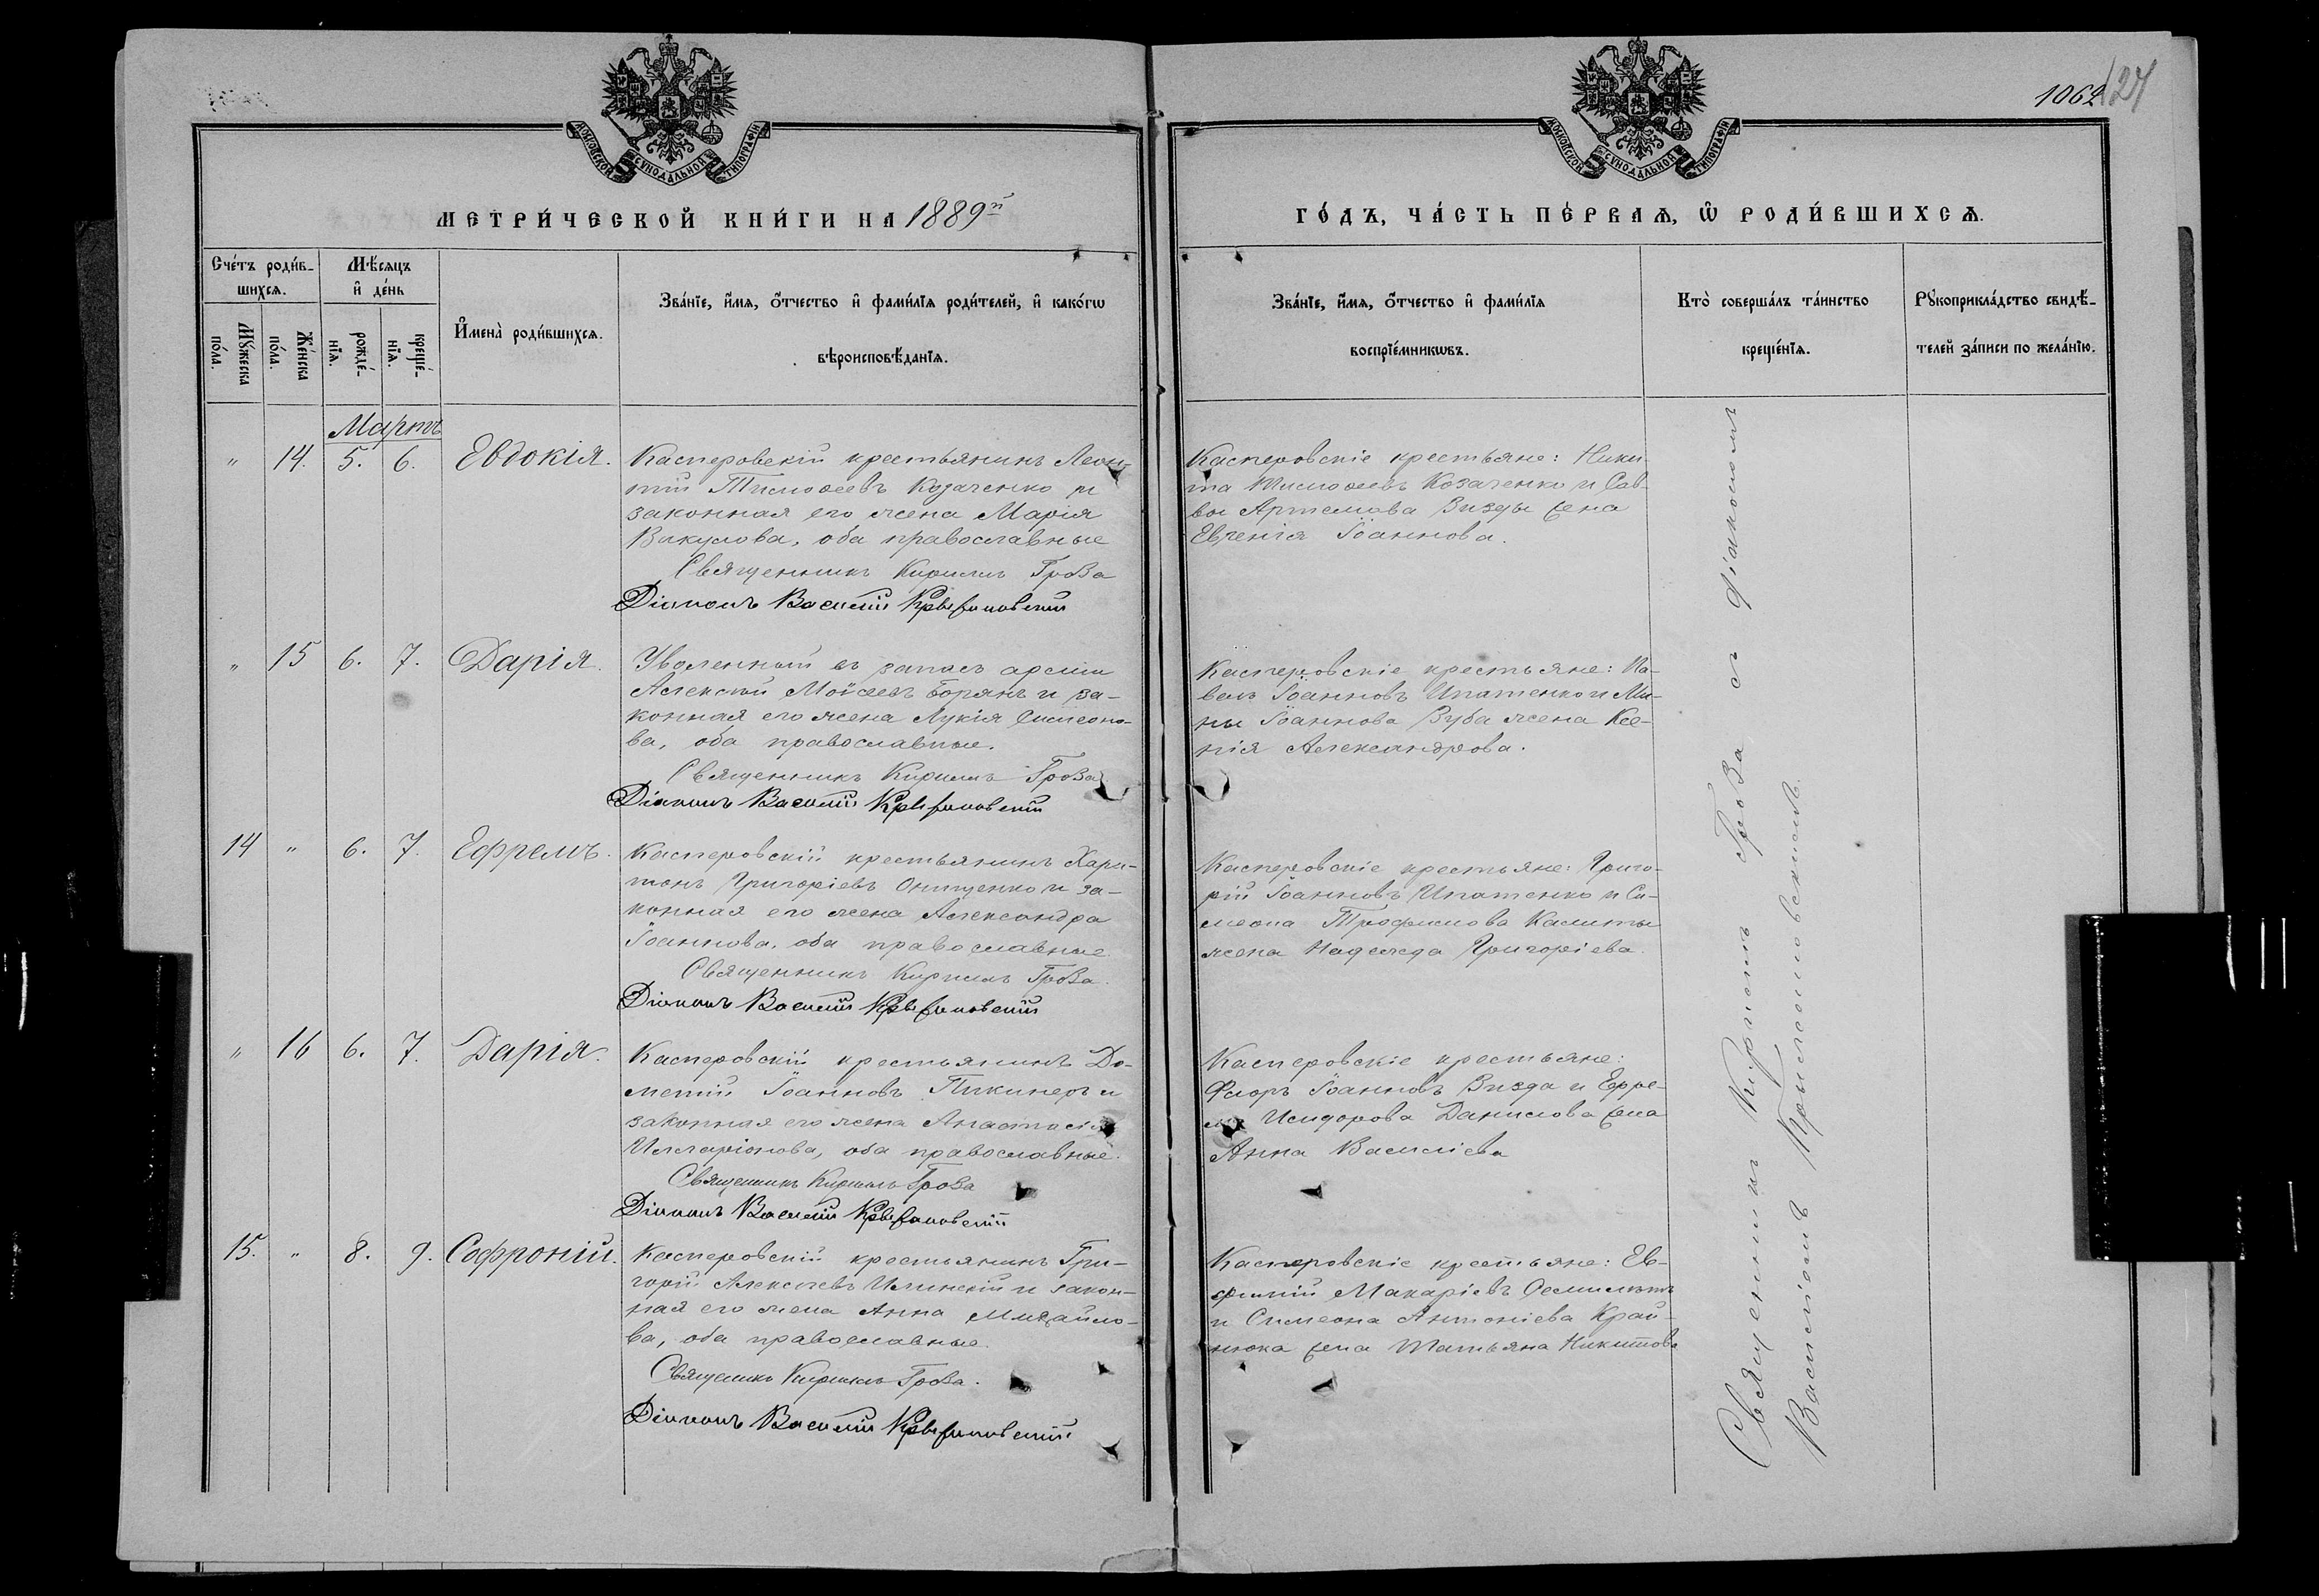 1062
127
МОСКОВСКОЙ СѴНОДАЛЬНОЙ ТИПОГРАФІИ
МОСКОВСКОЙ СѴНОДАЛЬНОЙ ТИПОГРАФІИ
МЕТРИ́ЧЕСКОЙ КНИ́ГИ НА 1889й
ГО́ДЪ, ЧА́СТЬ ПЕ́РВАѦ, Ѡ҆ РОДИ́ВШИХСѦ.
Сче́тъ роди́в-
шихсѧ.
Мꙋ́жеска
по́ла.
Же́нска
по́ла.
Мѣ́сяцъ
и҆ де́нь
рожде́-
нїѧ.
креще́-
нїѧ.
И҆мена̀ роди́вшихсѧ.
Зва́нїе, и҆́мѧ, ѻ҆́тчество и҆ фами́лїѧ роди́телей, и҆ како́гѡ
вѣроисповѣ́данїѧ.
Зва́нїе, и҆́мѧ, ѻ҆́тчество и҆ фами́лїѧ
воспрїе́мникѡвъ.
Кто̀ соверша́лъ та́инство
креще́нїѧ.
Рꙋкоприкла́дство свидѣ́-
телей за́писи по жела́нїю.
Мартъ
" 14. 5. 6. Евдокія.
Касперовскій крестьянинъ Леон-
тій Тимофеевъ Козаченко и
законная его жена Марія
Викулова, оба православные
Священникъ Кириллъ Гроза
Діаконъ Василій
Касперовскіе крестьяне: Ники-
та Тимофеевъ Козаченко и Сав-
вы Артемова Визды жена
Евгенія Іоаннова.
" 15 6. 7. Дарія.
Уволенный въ запасъ арміи
Алексій Моѵсеевъ Борянъ и за-
конная его жена Лукія Симеоно-
ва, оба православные.
Священникъ Кириллъ Гроза
Діаконъ Василій
Касперовскіе крестьяне: Па-
велъ Іоанновъ Ипатенко и Ми-
ны Іоаннова Зуба жена Ксе-
нія Александрова.
14 " 6. 7. Ефремъ.
Касперовскій крестьянинъ Хари-
тонъ Григоріевъ Онищенко и за-
конная его жена Александра
Іоаннова, оба православные
Священникъ Кириллъ Гроза.
Діаконъ Василій
Касперовскіе крестьяне: Григо-
рій Іоанновъ Ипатенко и Си-
меона Трофимова Калиты
жена Надежда Григоріева.
" 16 6. 7. Дарія.
Касперовскій крестьянинъ До-
метій Іоанновъ Пикинеръ и
законная его жена Анастасія
Илларіонова, оба православные.
Священникъ Кириллъ Гроза
Діаконъ Василій
Касперовскіе крестьяне:
Флоръ Іоанновъ Визда и Ефре-
ма Исидорова Данилова жена
Анна Василіева
15. " 8. 9. Софроній.
Касперовскій крестьянинъ Гри-
горій Алексіевъ Илинскій и закон-
ная его жена Анна Михайло-
ва, оба православные.
Священникъ Кириллъ Гроза.
Діаконъ Василій
Касперовскіе крестьяне: Ев-
фимій Макаріевъ
и Симеона Антоніева Край-
нюка жена Татьяна Никитова
Священникъ Кириллъ Гроза съ діакономъ
Василіемъ